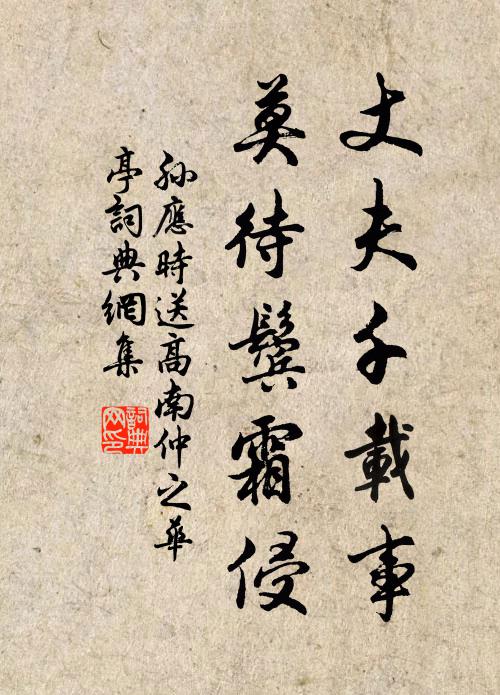 丈夫千載事
莫待鬢霜侵
孫應時送高南仲之華
亭詞典網集
詞典網印